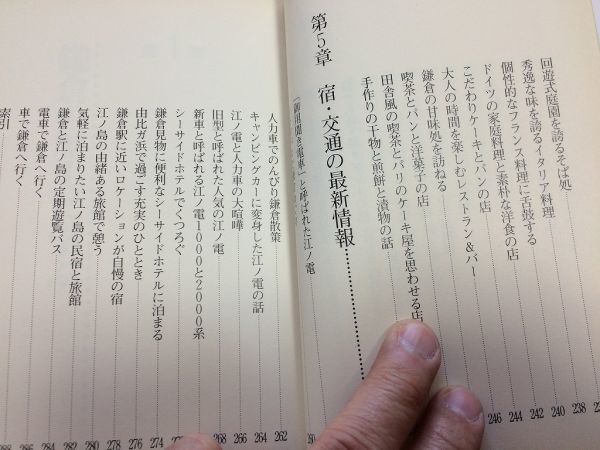 回遊式庭園を誇るそば処 238
秀逸な味を誇るイタリア料理 240
個性的なフランス料理に舌鼓する 242
ドイツの家庭料理と素朴な洋食の店 244
こだわりケーキとパンの店 246
大人の時間を楽しむレストラン&バー
鎌倉の甘味処を訪ねる
喫茶とパンと洋菓子の店
田舎風の喫茶とパリのケーキ屋を思わせる店
手作りの干物と煎餅と漬物の話
第5章 宿・交通の最新情報
「御用聞き電車」と呼ばれた江ノ電
人力車でのんびり鎌倉散策 262
キャンピングカーに変身した江ノ電の話 264
江ノ電と人力車の大喧嘩 266
旧型と呼ばれた人気の江ノ電 268
新車と呼ばれる江ノ電1000と2000系
シーサイドホテルでくつろぐ
鎌倉見物に便利なシーサイドホテルに泊まる 274
由比ガ浜で過ごす充実のひととき 276
鎌倉駅に近いロケーションが自慢の宿 278
江ノ島の由緒ある旅館で憩う 278
気軽に泊まりたい江ノ島の民宿と旅館 280
鎌倉と江ノ島の定期遊覧バス 282
電車で鎌倉へ行く 284
車で鎌倉へ行く 286
索引 288